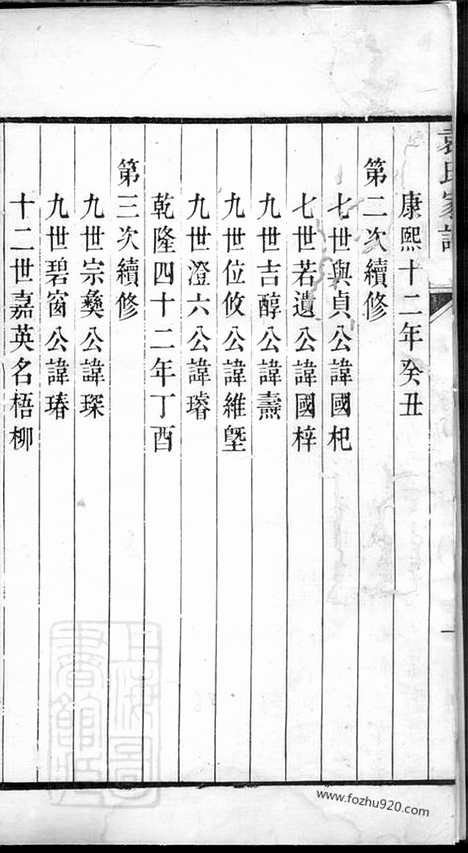 袁氏家譜
康熙十二年癸丑
第二次續修
七世與貞公諱國杞
七世若遺公諱國梓
九世吉醇公諱燾
九世位攸公諱維塈
九世澄六公諱璿
乾隆四十二年丁酉
第三次續修
九世宗彝公諱琛
九世碧窗公諱瑃
十二世嘉英名梧柳
一
上海圖書館藏
www.fozhu920.com